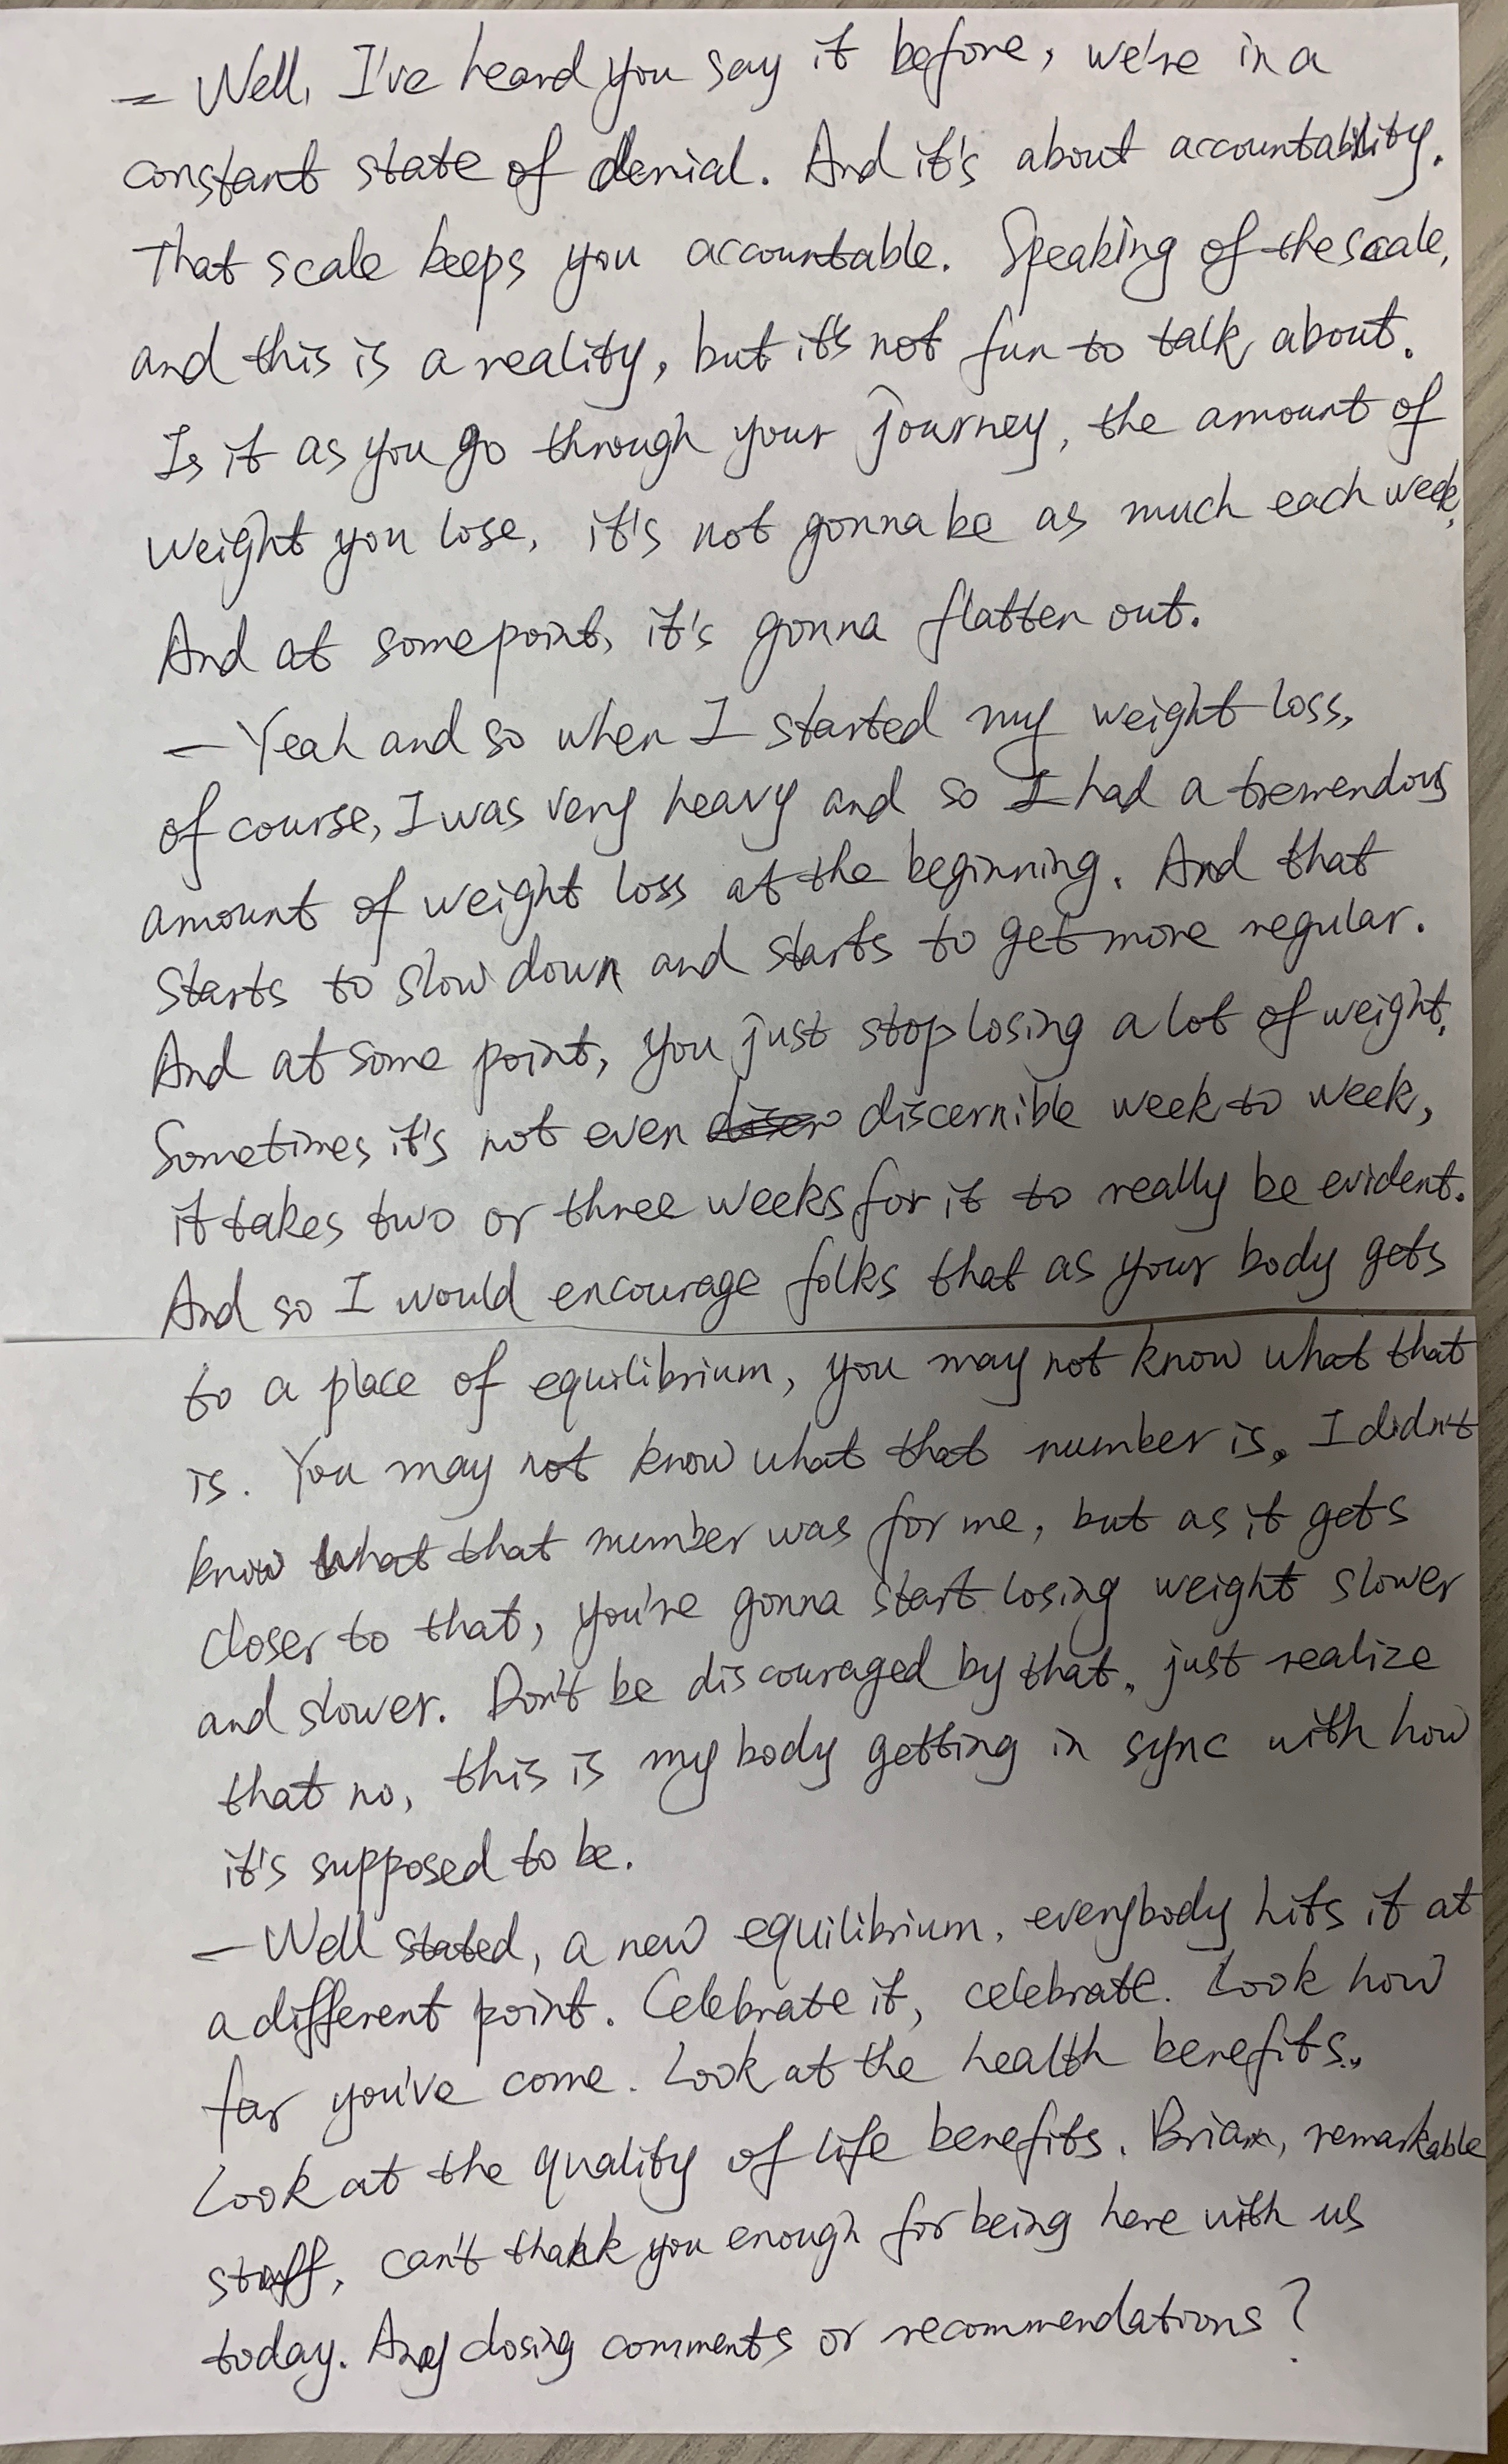 - Well, I've heard you say it before, we're in a
constant state of denial. And it's about accountability.
That scale keeps you accountable. Speaking of the scale,
and this is a reality, but it's not fun to talk about.
Is it as you go through your journey, the amount of
weight you lose, it's not gonna be as much each week,
And at some point, it's gonna flatten out.
- Yeah and so when I started my weight loss,
of course, I was very heavy and so I had a tremendous
amount of weight loss at the beginning. And that
starts to slow down and starts to get more regular.
And at some point, you just stop losing a lot of weight,
Sometimes it's not even discernible week to week,
it takes two or three weeks for it to really be evident.
And so I would encourage folks that as your body gets
to a place of equilibrium, you may not know what that
is. You may not know what that number is. I didn't
know what that number was for me, but as it gets
closer to that, you're gonna start losing weight slower
and slower. Don't be discouraged by that, just realize
that no, this is my body getting in sync with how
it's supposed to be.
- Well stated, a new equilibrium, everybody hits it at
a different point. Celebrate it, celebrate. Look how
far you've come. Look at the health benefits.
Look at the quality of life benefits. Brian, remarkable
stuff, can't thank you enough for being here with us
today. Any closing comments or recommendations?